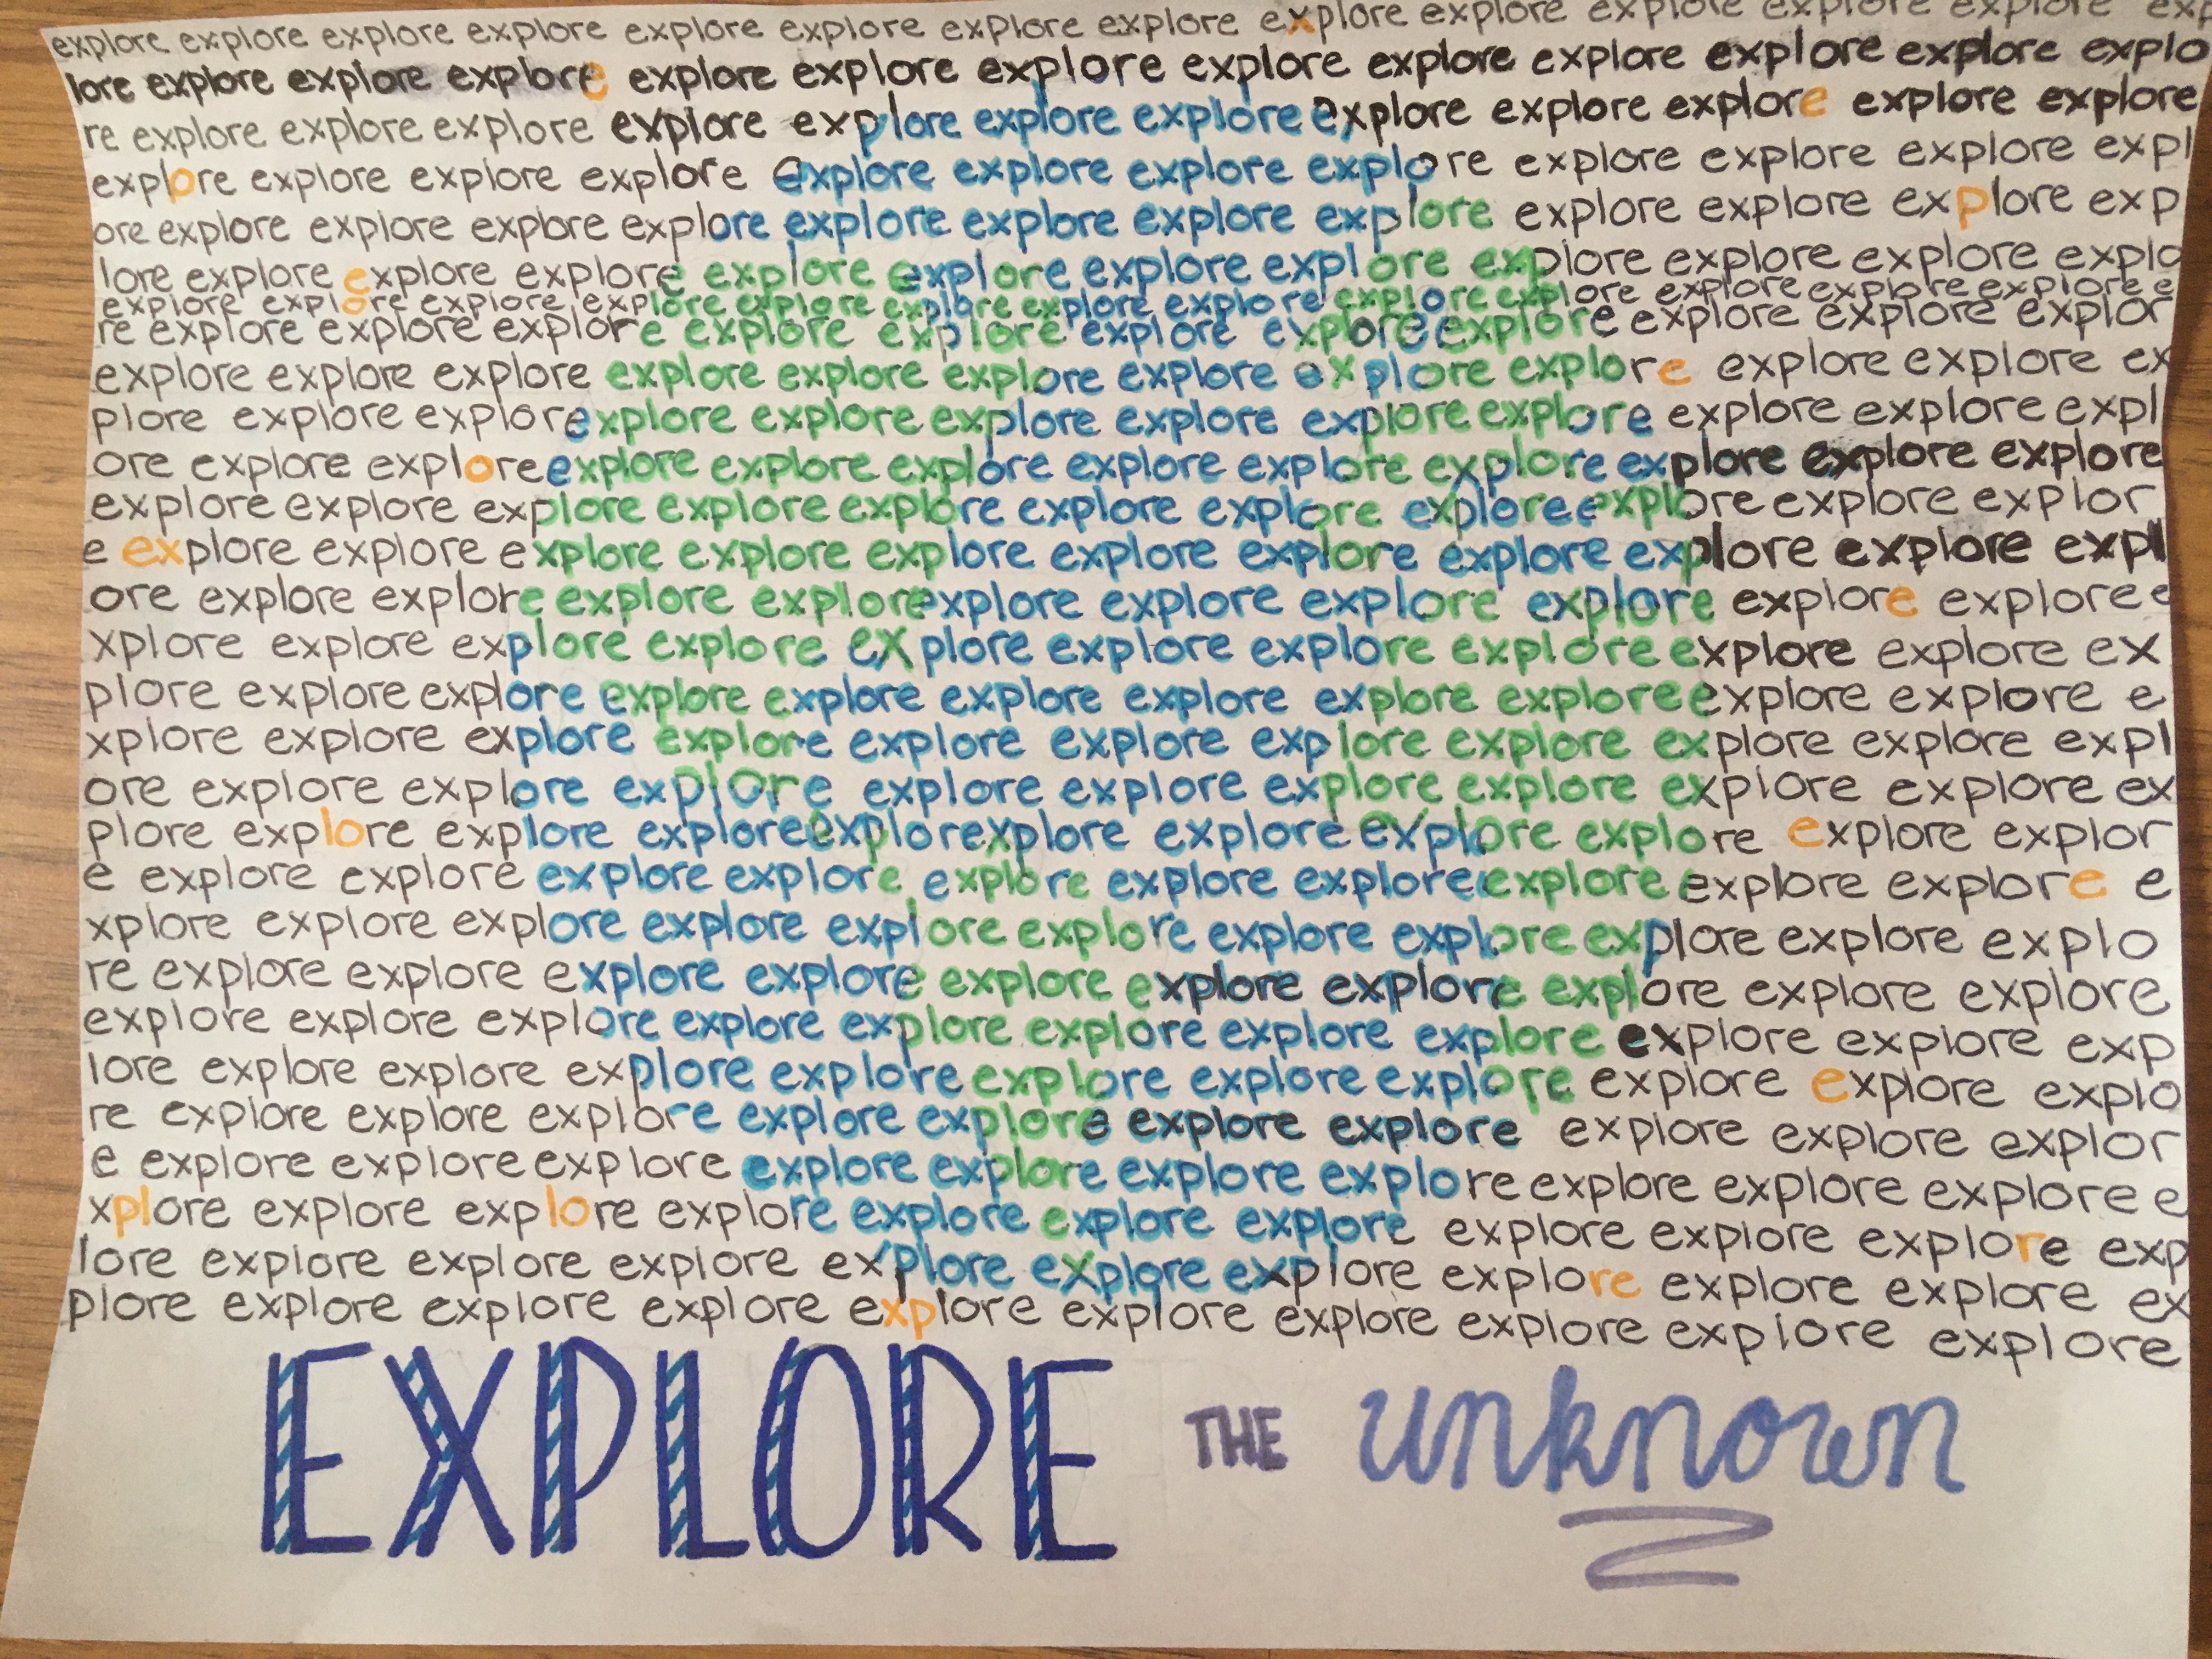 explore explore explore explore explore explore explore explore explore explore explore explore explore exp
lore explore explore explore explore explore explore explore explore explore explore explore explo
re explore explore explore explore explore explore explore explore explore explore explore explore
explore explore explore explore explore explore explore explore explore explore explore expl
ore explore explore explore explore explore explore explore explore explore explore exp
lore explore explore explore explore explore explore explore explore explore explore explo
explore explore explore explore explore explore explore explore explore explore explore explore explore e
re explore explore explore explore explore explore explore explore explore explore explor
explore explore explore explore explore explore explore explore explore explore explore ex
plore explore explore explore explore explore explore explore explore explore explore expl
ore explore explore explore explore explore explore explore explore explore explore explore
explore explore explore explore explore explore explore explore explore explore explor
e explore explore explore explore explore explore explore explore explore explore expl
ore explore explore explore explore explore explore explore explore explore explore e
xplore explore explore explore explore explore explore explore explore explore ex
plore explore explore explore explore explore explore explore explore explore e
xplore explore explore explore explore explore explore explore explore explore expl
ore explore explore explore explore explore explore explore explore explore ex
plore explore explore explore explorexplore explore explore explore explore explor
e explore explore explore explore explore explore explore explore explore explore e
xplore explore explore explore explore explore explore explore explore explore explo
re explore explore explore explore explore explore explore explore explore explore
explore explore explore explore explore explore explore explore explore explore exp
lore explore explore explore explore explore explore explore explore explore explo
re explore explore explore explore explore explore explore explore explore explor
e explore explore explore explore explore explore explore explore explore explore e
xplore explore explore explore explore explore explore explore explore explore exp
lore explore explore explore explore explore explore explore explore explore ex
plore explore explore explore explore explore explore explore explore explore
EXPLORE THE unknown